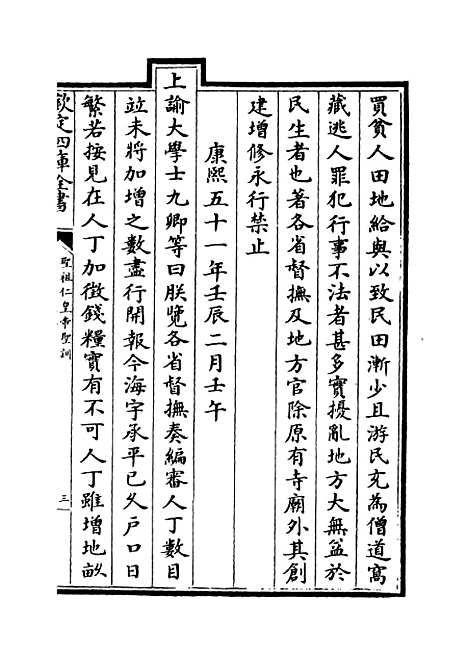 買貧人田地給與以致民田漸少且游民充為僧道窩
藏逃人罪犯行事不法者甚多實擾亂地方大無益於
民生者也著各省督撫及地方官除原有寺廟外其創
建增修永行禁止
康熙五十一年壬辰二月壬午
上諭大學士九卿等曰朕覽各省督撫奏編審人丁數目
竝未將加增之數盡行開報今海宇承平已久戶口日
繁若按見在人丁加徵錢糧實有不可人丁雖增地畝
欽定四庫全書
聖祖仁皇帝聖訓
三